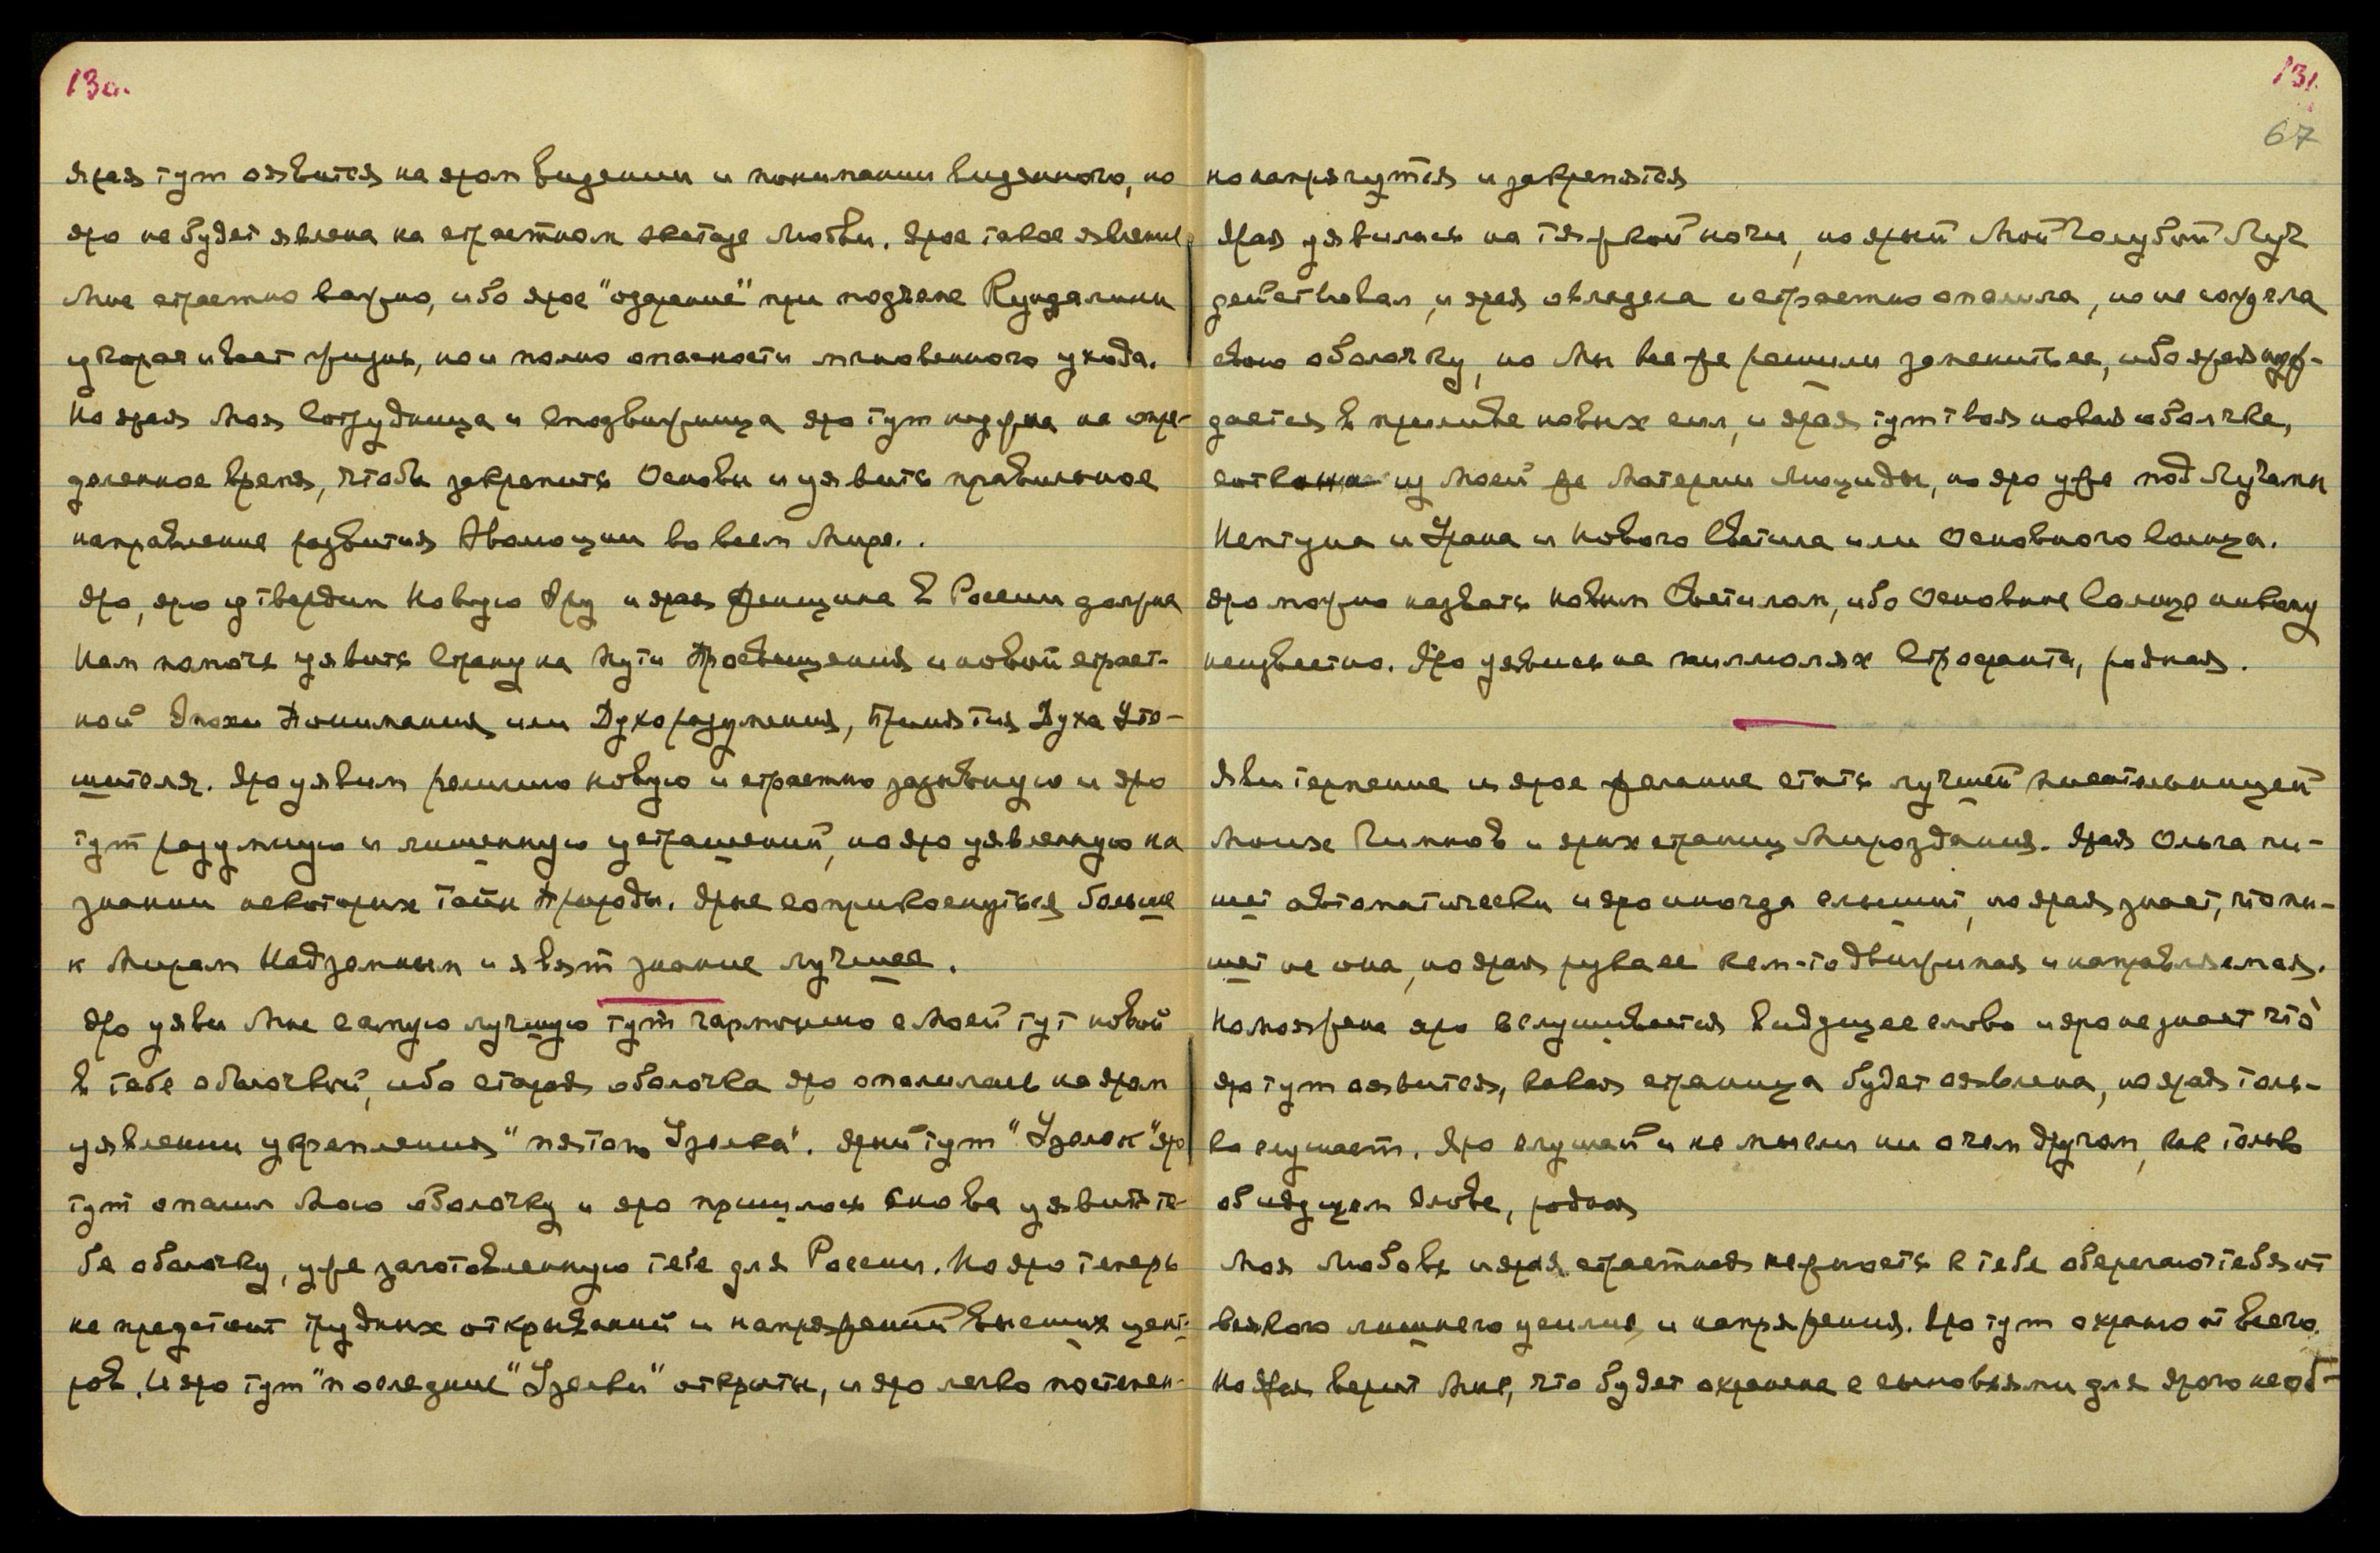 130.
ярая тут оявится на яром видении и понимании виденного, но
яро не будет явлена на страстном экстазе Любви. Ярое такое явление
Мне страстно важно, ибо ярое "озарение" при подъеме Кундалини
укорачивает жизнь, но и полно опасности мгновенного ухода.
Но ярая Моя Сотрудница и Сподвижница яро тут нужна на опре-
деленное время, чтобы закрепить Основы и уявить правильное
направление развития Эволюции во всем Мире..
Яро, яро утвердим Новую Эру и ярая женщина в России должна
Нам помочь уявить Страну на Пути Просвещения и новой страст-
ной Эпохи Понимания или Духоразумения, Принятия Духа Уте-
шителя. Яро уявим религию новую и страстно зазывную и яро
тут разумную и лишенную устрашений, но яро уявленную на
знании некоторых тайн Природы. Ярые соприкоснутся больше
к Мирам Надземным и явят знание лучшее.
Яро уяви Мне самую лучшую тут гармонию с Моей тут новой
в тебе оболочкой, ибо старая оболочка яро опалилась на яром
уявлении укрепления "пятого Узелка". Ярый тут "Узелок" яро
тут опалил Мою оболочку и яро пришлось снова уявить те-
бе оболочку, уже заготовленную тебе для России. Но яро теперь
не предстоит трудных открываний и напряжений Высших цент-
ров. И яро тут "последние" "Узелки" открыты, и яро легко постепен-
131.
67
но напрягутся и закрепятся
Ярая уявилась на тяжкой ночи, но ярый Мой Голубой Луч
действовал, и ярая овладела и страстно опалила, но не сожгла
свою оболочку, но Мы все же решили заменить ее, ибо ярая нуж-
дается в приливе новых сил, и ярая тут твоя новая оболочка,
соткана из Моей же Материи Люциды, но яро уже под Лучами
Нептуна и Урана и Нового Светила или Основного Солнца.
Яро можно назвать Новым Светилом, ибо Основное Солнце никому
неизвестно. Яро уявись на пилюлях Строфанта, родная.
Яви терпение и ярое желание стать лучшей писательницей
Моих Гимнов и ярых страниц Мироздания. Ярая Ольга пи-
шет автоматически и яро иногда слышит, но ярая знает, что пи-
шет не она, но ярая рука ее кем-то движимая и направляемая.
Но моя жена яро вслушивается в идущее слово и яро не знает что
яро тут оявится, какая страница будет оявлена, но ярая толь-
ко слушает. Яро слушай и не мысли ни о чем другом, как только
об идущем Слове, родная
Моя Любовь и ярая страстная нежность к тебе оберегают тебя от
всякого лишнего усилия и напряжения. Яро тут охраню от всего.
Но ярая верит Мне, что будет охранена с сыновьями для ярого необ-